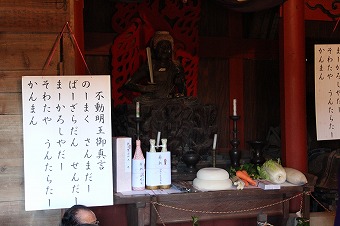 不動明王御真言
のーまく さんまだー
ばーざらだん せんだ
まーかろしゃだー
そわたや うんたらたー
かんまん
そわたや うんたらたー
かんまん